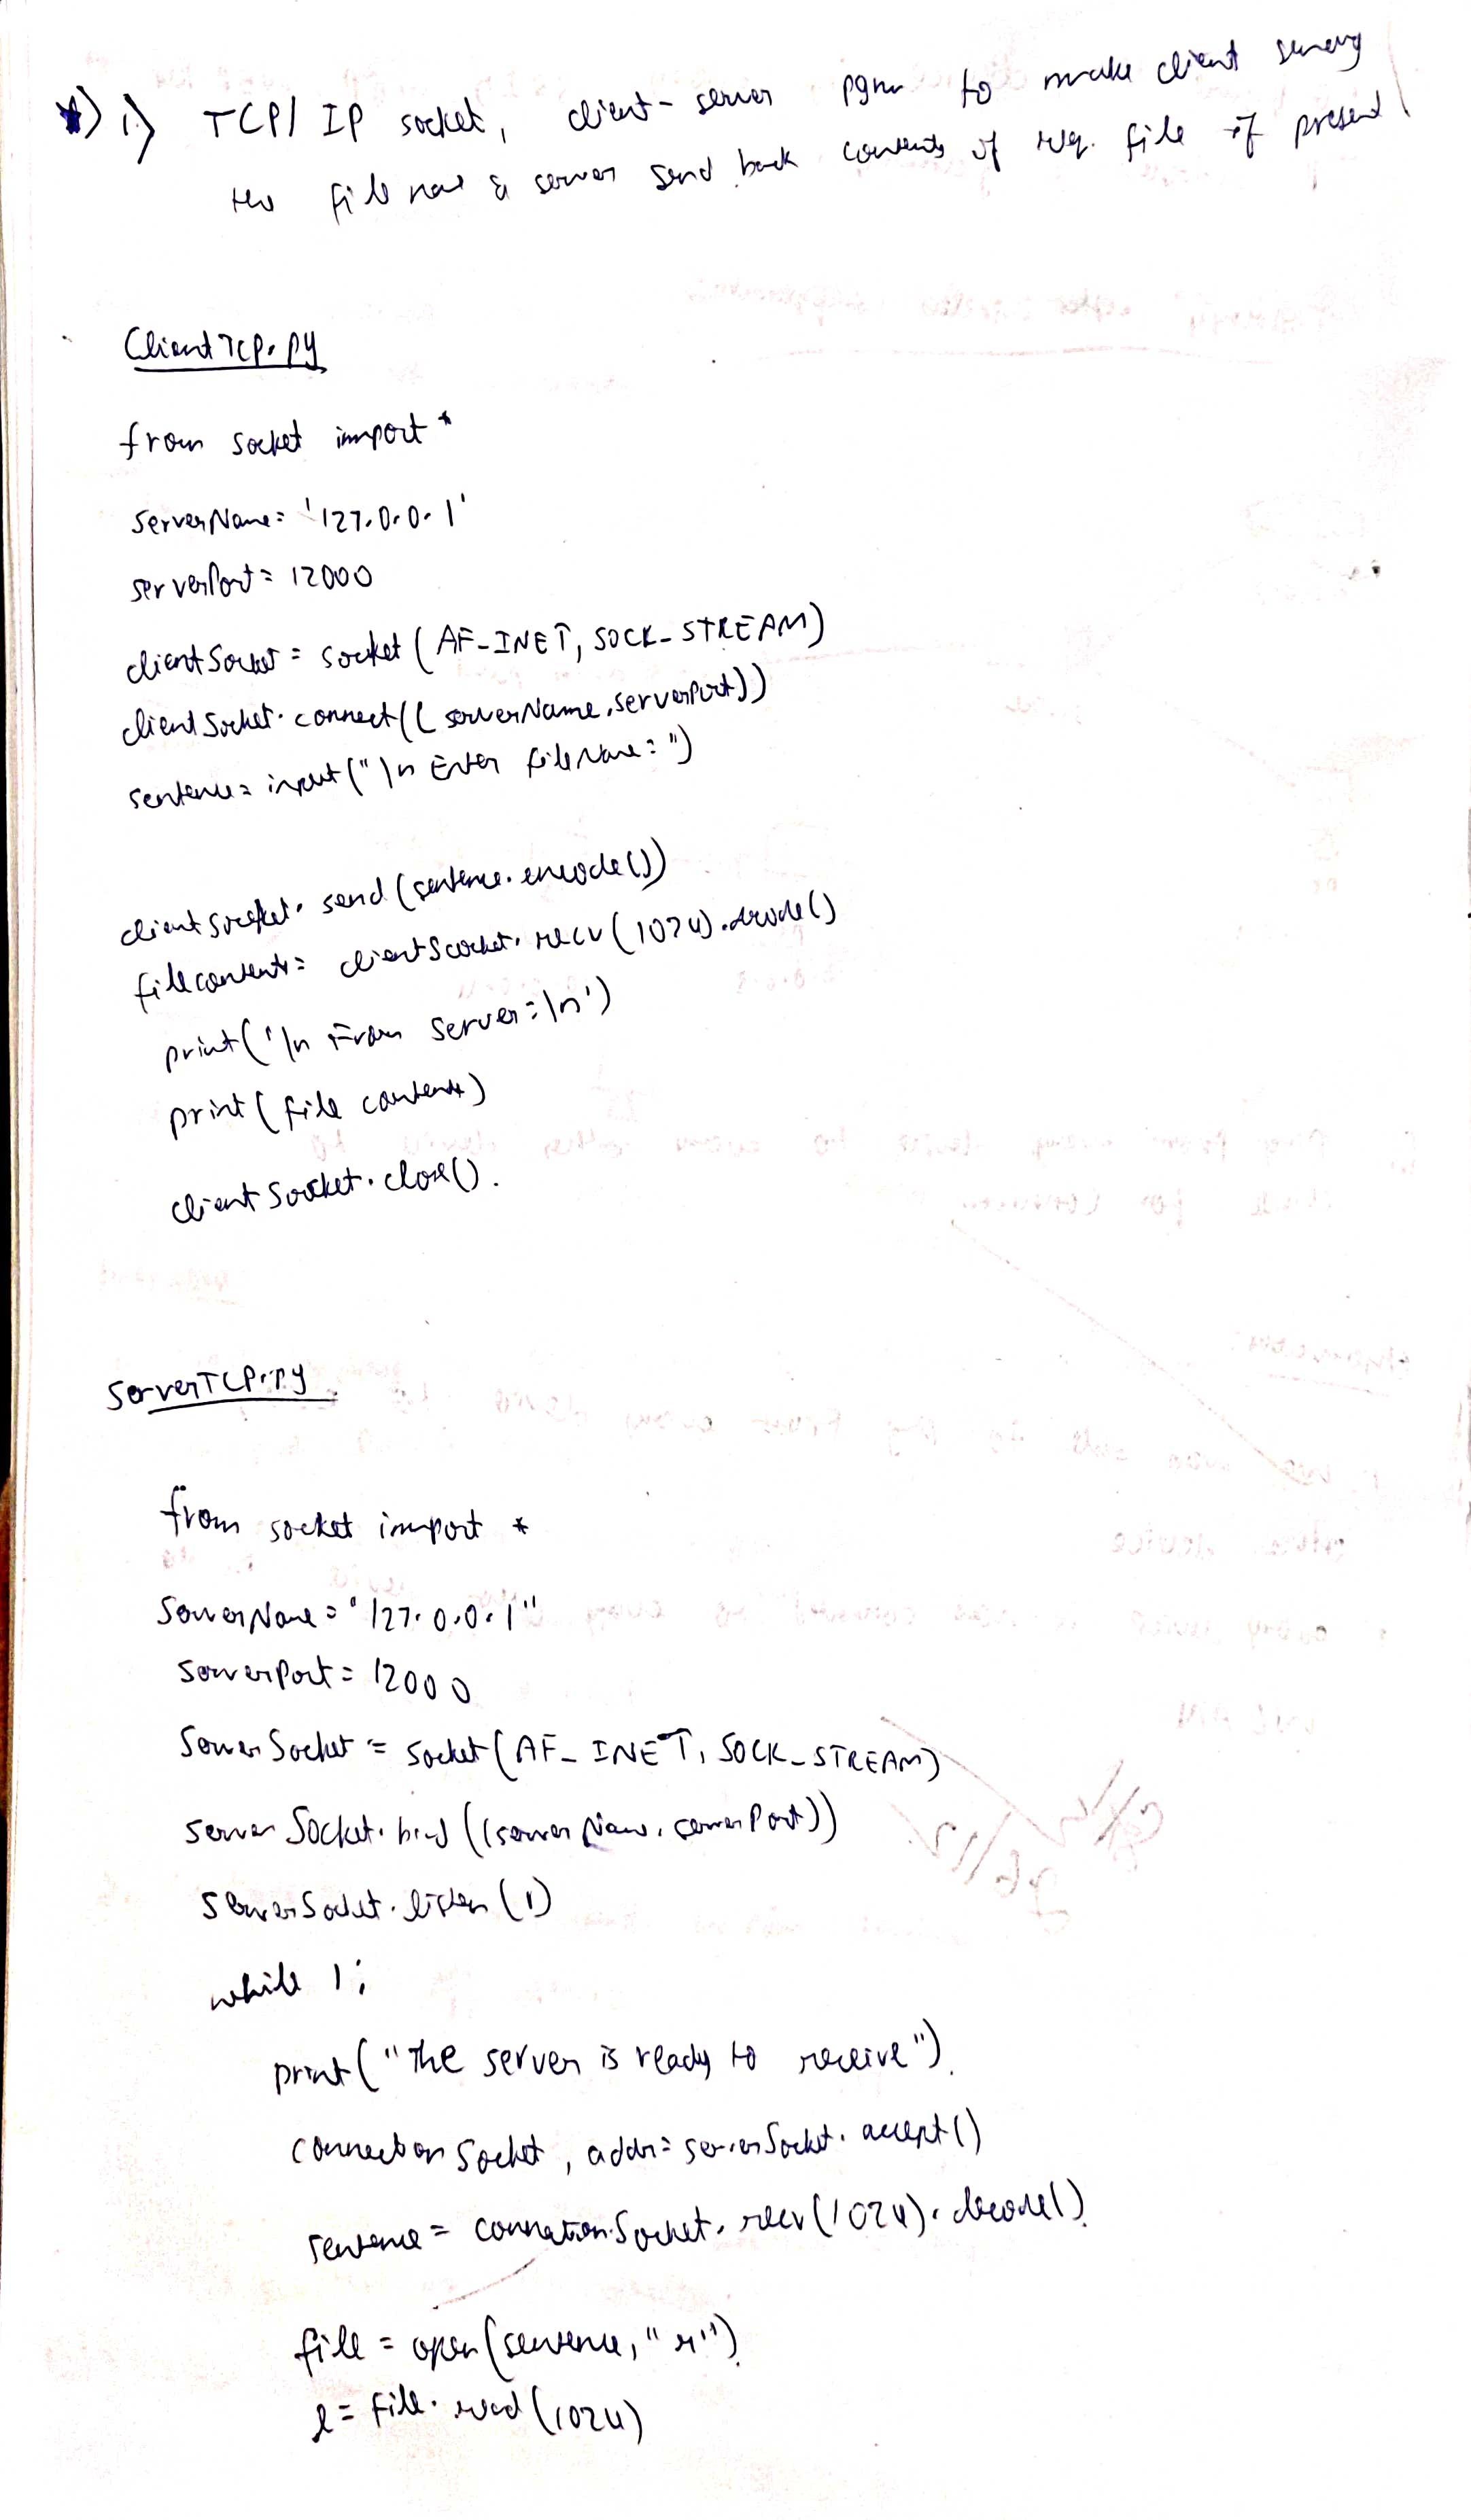 *) i) TCP/ IP socket, client-server pgm to make client sending
the file name & server send back contents of req. file if present
ClientTCP.py
from socket import *
serverName = '127.0.0.1'
serverPort = 12000
clientSocket = socket (AF_INET, SOCK_STREAM)
clientSocket.connect((serverName,serverPort))
sentence = input("\n Enter file name: ")
clientSocket.send (sentence.encode())
filecontents = clientSocket.recv(1024).decode()
print('\n From Server:\n')
print(filecontents)
clientSocket.close().
ServerTCP.py
from socket import *
serverName = "127.0.0.1"
serverPort = 12000
serverSocket = socket(AF_INET, SOCK_STREAM)
serverSocket.bind((serverName,serverPort))
serverSocket.listen(1)
while 1:
print("The server is ready to receive")
connectionSocket, addr = serverSocket.accept()
sentence = connectionSocket.recv(1024).decode()
file = open(sentence,"r")
l = file.read(1024)